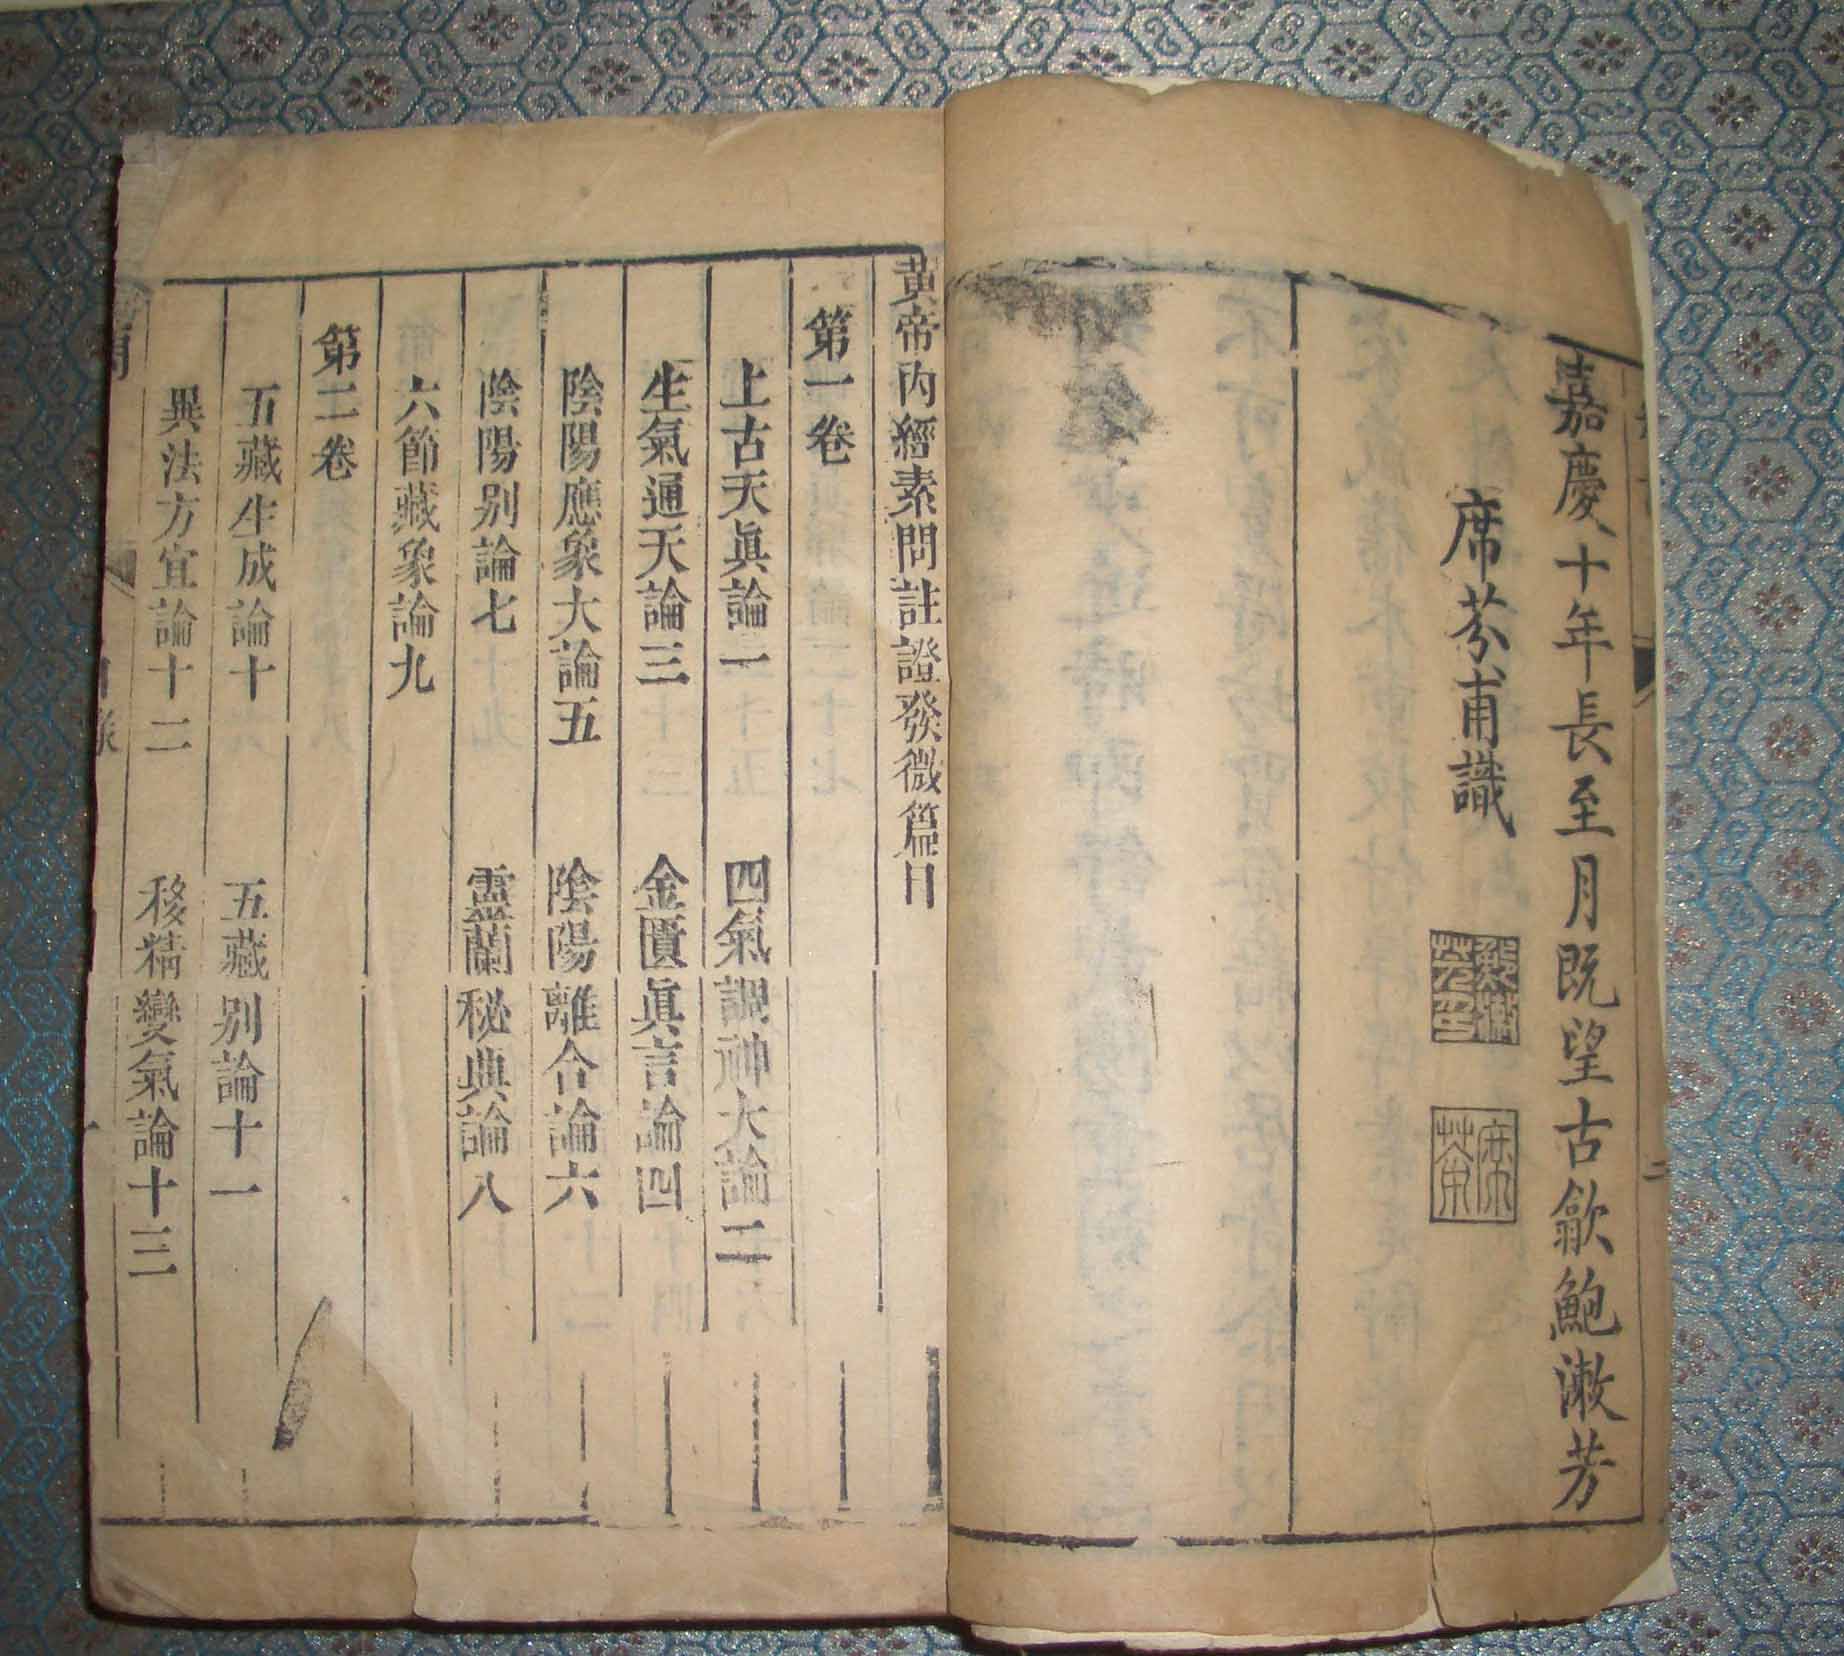 嘉慶十年長至月既望古歙鮑漱芳
席芬甫識
黃帝內經素問註證發微篇目
第一卷
上古天眞論一 四氣調神大論二
生氣通天論三 金匱眞言論四
陰陽應象大論五 陰陽離合論六
陰陽別論七 靈蘭秘典論八
六節藏象論九
第二卷
五藏生成論十 五藏别論十一
異法方宜論十二 移精變氣論十三